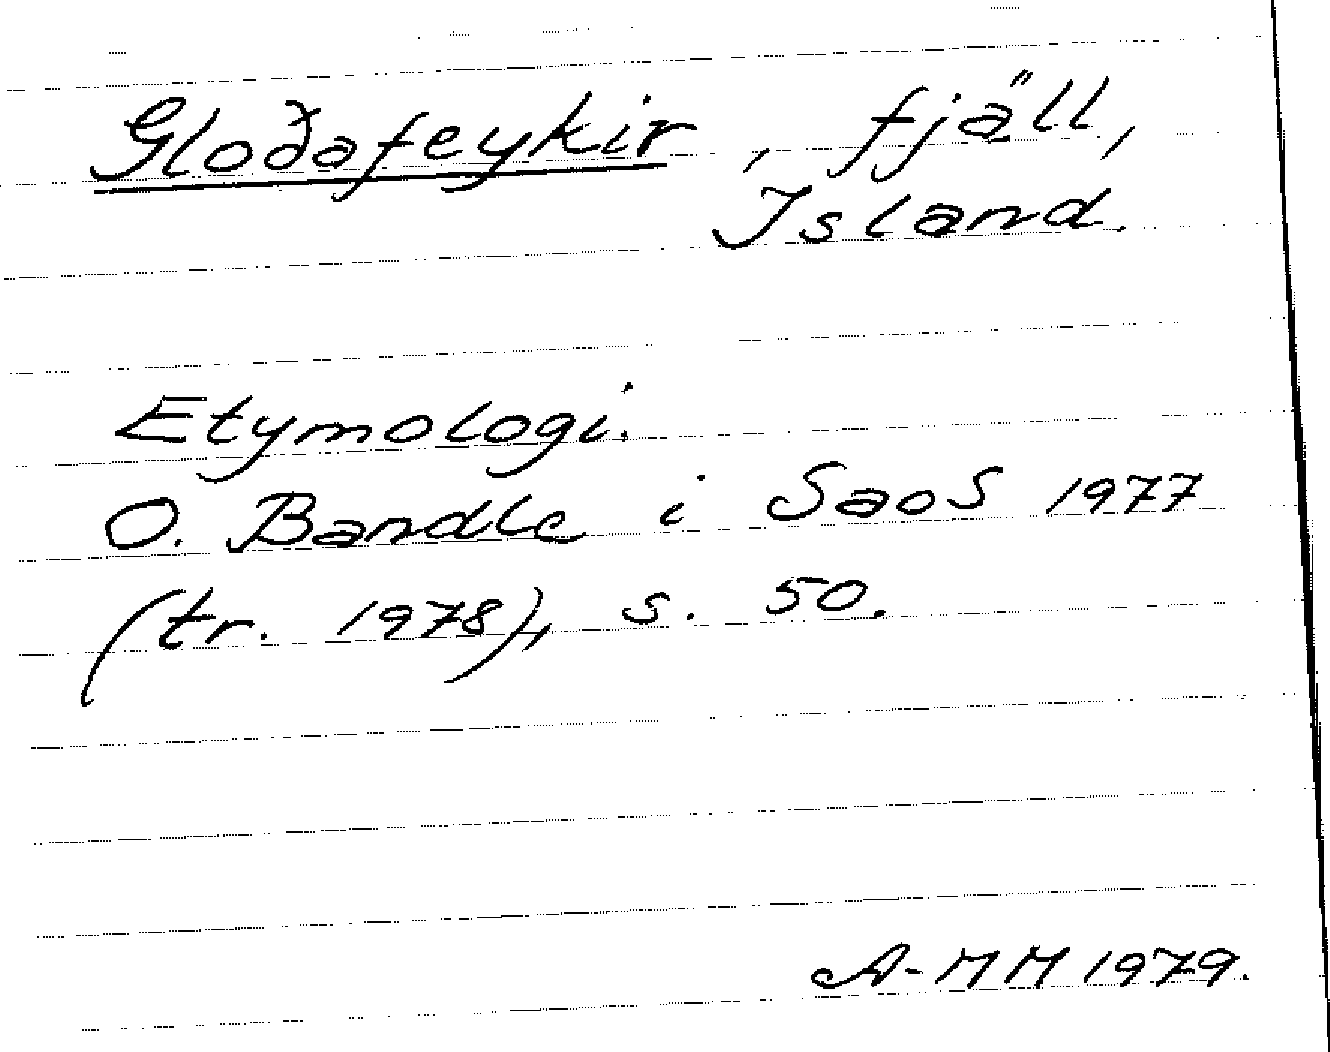 Gloðafeykir, fjäll,
Island.
Etymologi.
O. Bandle i SaoS 1977
(tr. 1978), s. 50.
A-MM 1979.